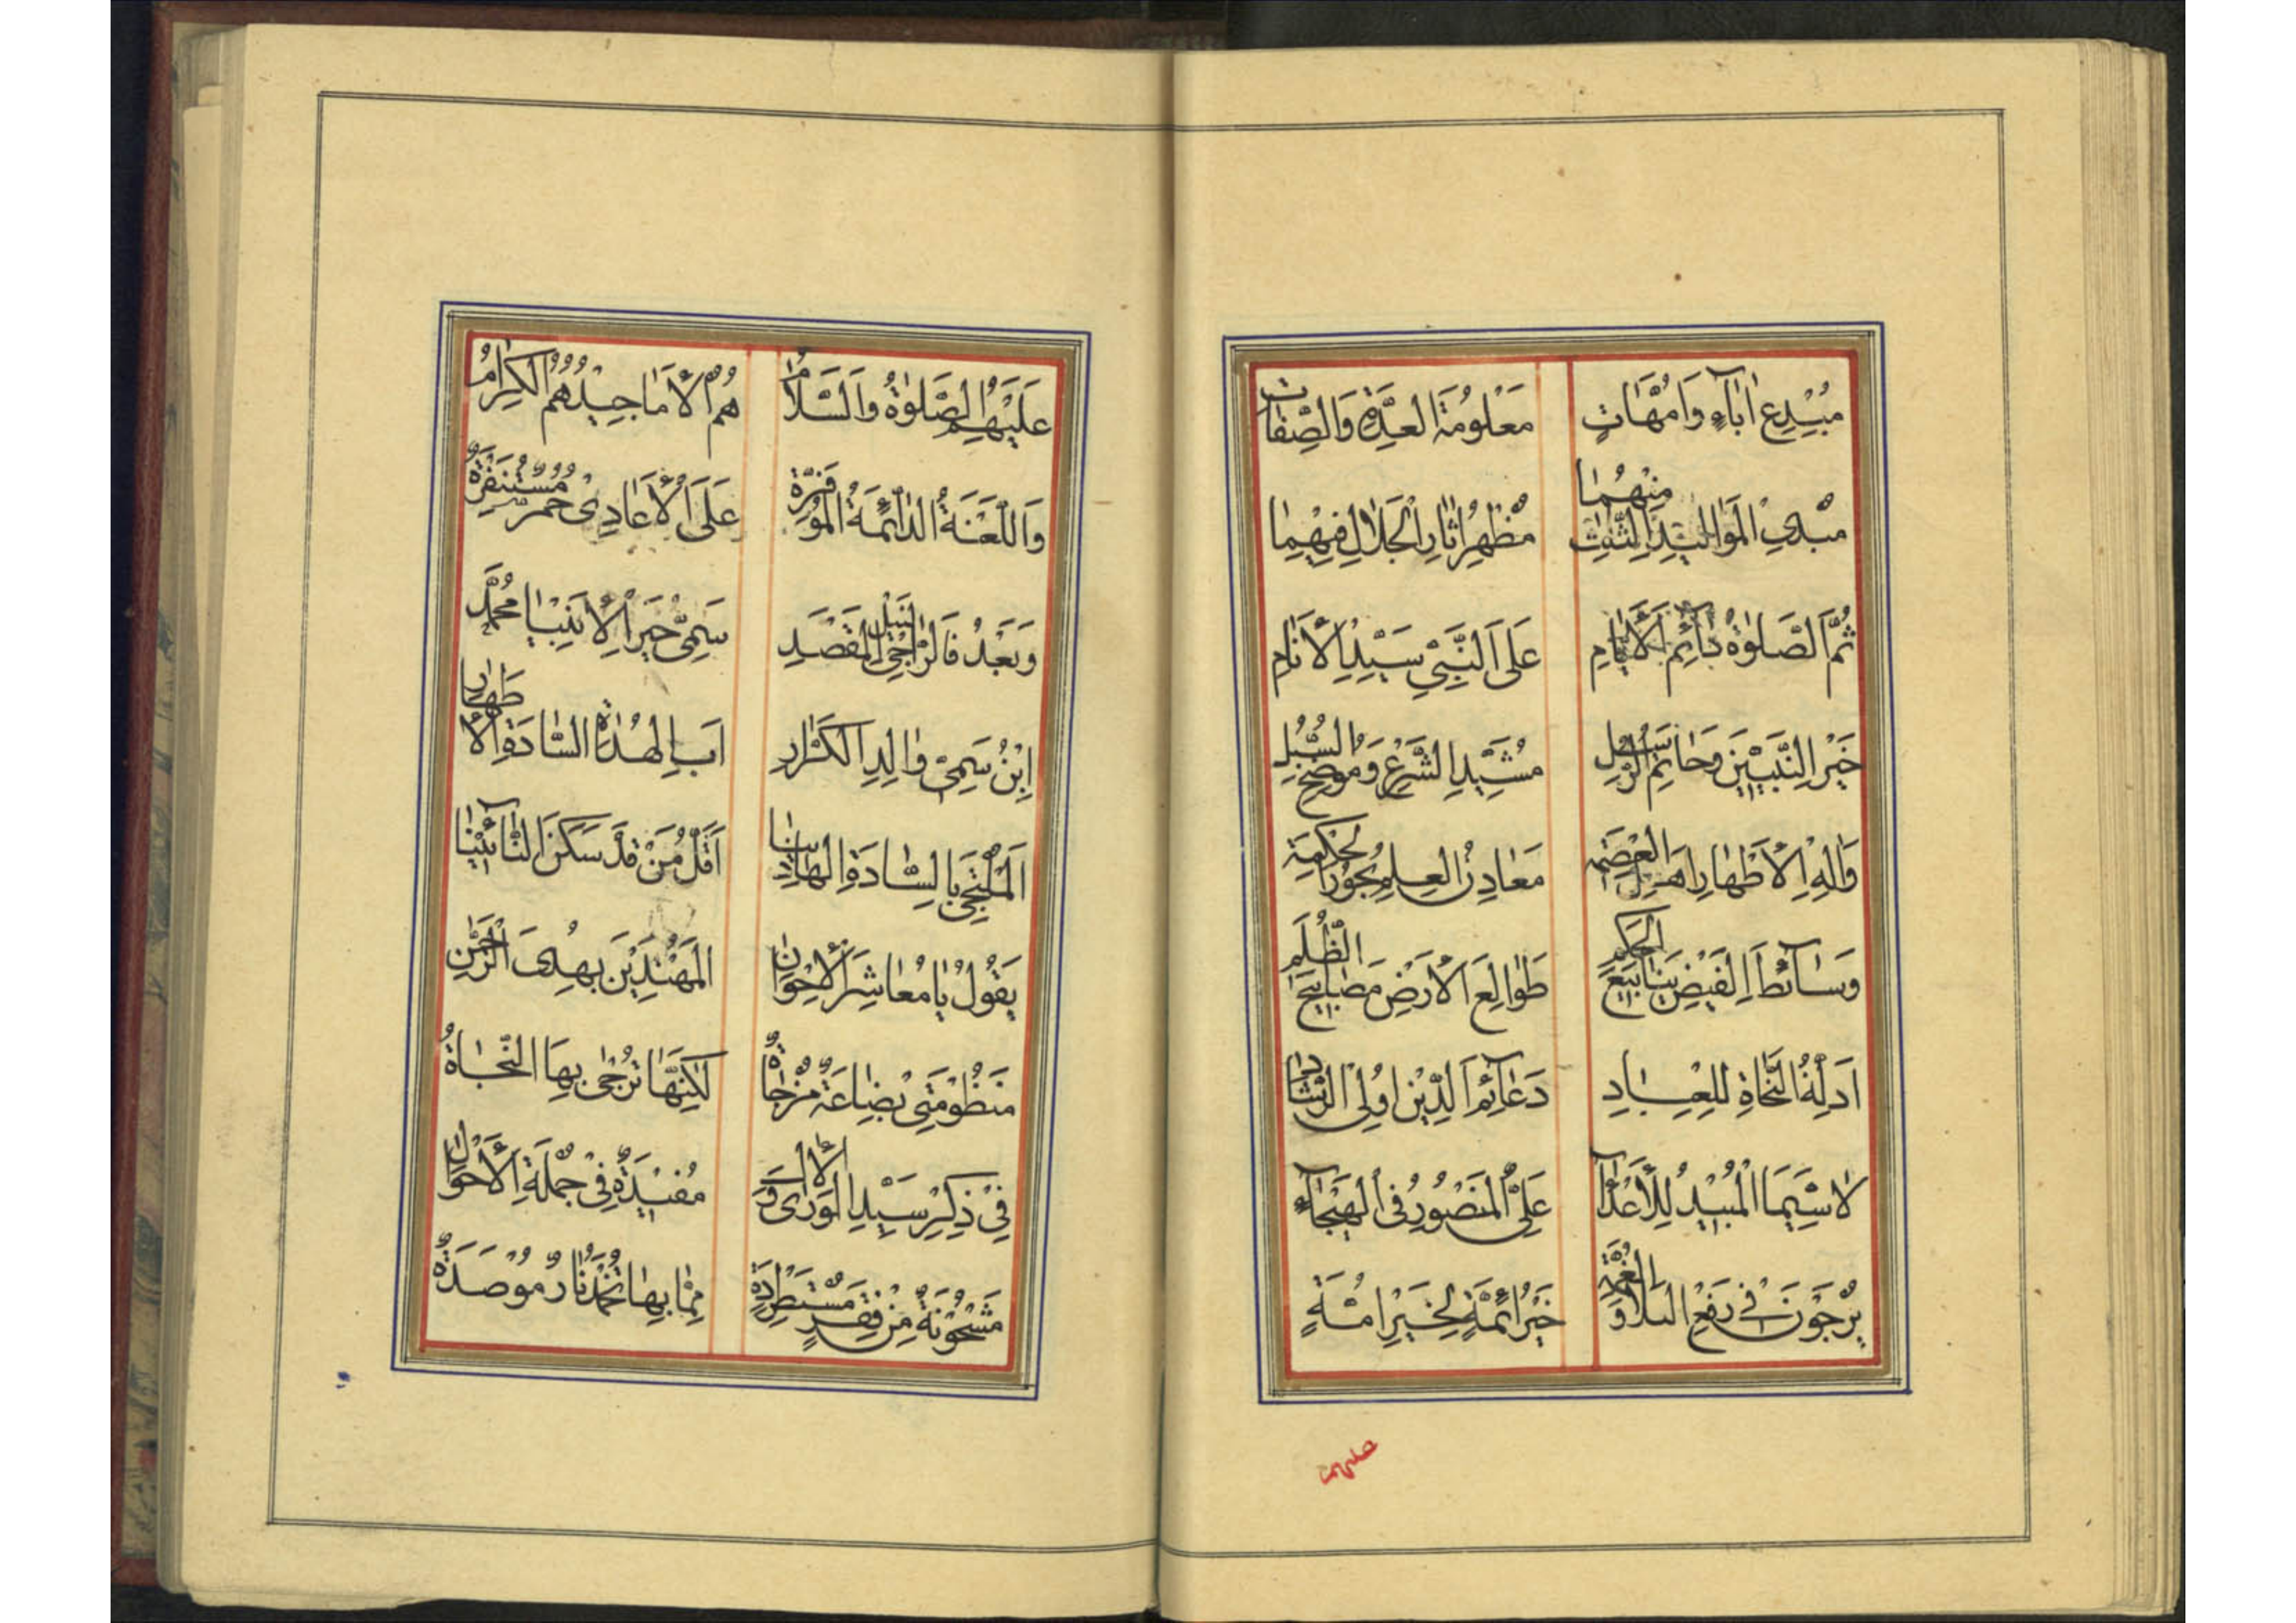 مُبْدِعِ اٰبآءٍ وَاُمَّهَاتٍ مَعْلُومَةِ الْعِدَّةِ وَالصِّفَاتِ
مُبْدِي الْمَوَالِيدِ الثَّلٰثِ مِنْهُمَا مُظْهِرُ اٰثَارِ الْجَلَالِ فِيْهِمَا
ثُمَّ الصَّلٰوةُ دٰآئِمَ الْاَيَّامِ عَلَى النَّبِيِّ سَيِّدِ الْاَنَامِ
خَيْرِ النَّبِيِّيْنَ وَخَاتِمِ الرُّسُلِ مُشَيِّدِ الشَّرْعِ وَمُوضِحِ السُّبُلِ
وَاٰلِهِ الْاَطْهَارِ اَهْلِ الْعِصْمَةِ مَعَادِنُ الْعِلْمِ بُحُورُ الْحِكْمَةِ
وَسَائِطِ الْفَيْضِ يَنَابِيعِ الْحِكَمِ طَوَالِعِ الْاَرْضِ مَصَابِيحِ الظُّلَمِ
اَدِلَّةُ النَّجَاةِ لِلْعِبَادِ دَعَآئِمُ الدِّيْنِ اُولِى الرَّشَادِ
لَاسِيَّمَا الْمُبِيْدُ لِلْاَعْدَآءِ عَلِيٌّ الْمَنْصُورُ فِى الْهَيْجَآءِ
يُرْجَوْنَ فِي دَفْعِ الْبَلَا وَالْغُمَّةِ خَيْرُ اَئِمَّةٍ لِخَيْرِ اُمَّةٍ
عَلَيْهِمُ الصَّلٰوةُ وَالسَّلَامُ هُمُ الْاَمَاجِيْدُ هُمُ الْكِرَامُ
وَاللَّعْنَةُ الدَّائِمَةُ الْمُوَفَّرَةُ عَلَى الْاَعَادِيْ حُمُرٌ مُسْتَنْفِرَةٌ
وَبَعْدُ فَالرَّاجِي لِنَيْلِ الْمَقْصَدِ سَمِيُّ خَيْرِ الْاَنْبِيَا مُحَمَّدُ
اِبْنُ سَمِيِّ وَالِدِ الْكَرَّارِ اَبِ الْهُدَاةِ السَّادَةِ الْاَطْهَارِ
اَلْمُلْتَجِي بِالسَّادَةِ الْهَادِيْنَا اَقَلُّ مَنْ قَدْ سَكَنَ النَّائِيْنَا
يَقُولُ يَا مُعَاشِرَ الْاِخْوَانِ الْمُهْتَدِيْنَ بِهُدَى الرَّحْمٰنِ
مَنْظُوْمَتِي بِضَاعَةٌ مُزْجَاةٌ لٰكِنَّهَا تُرْجٰى بِهَا النَّجَاةُ
فِيْ ذِكْرِ سَيِّدِ الْوَرٰى وَالْاٰلِ مُفِيْدَةٌ فِيْ جُمْلَةِ الْاَحْوَالِ
مَشْحُوْنَةٌ مِنْ فِقَرٍ مُسْتَطْرَدَةٍ مِمَّا بِهَا تُخْمَدُ نَارٌ مُوْصَدَةٌ
عليهم